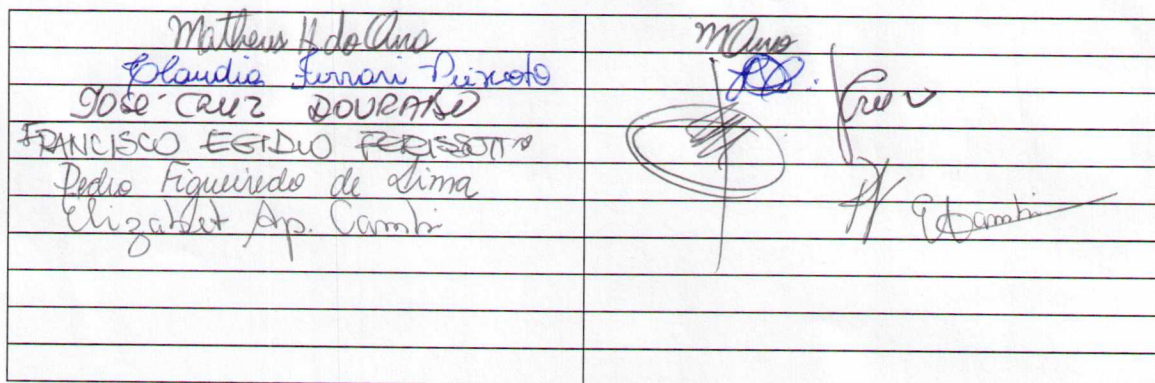 Matheus H. do Amo
Claudia Ferrari Peixoto
JOSÉ CRUZ DOURADO
FRANCISCO EGIDIO PERISSOTTO
Pedro Figueiredo de Lima
Elizabet Ap. Cambi
ECambi